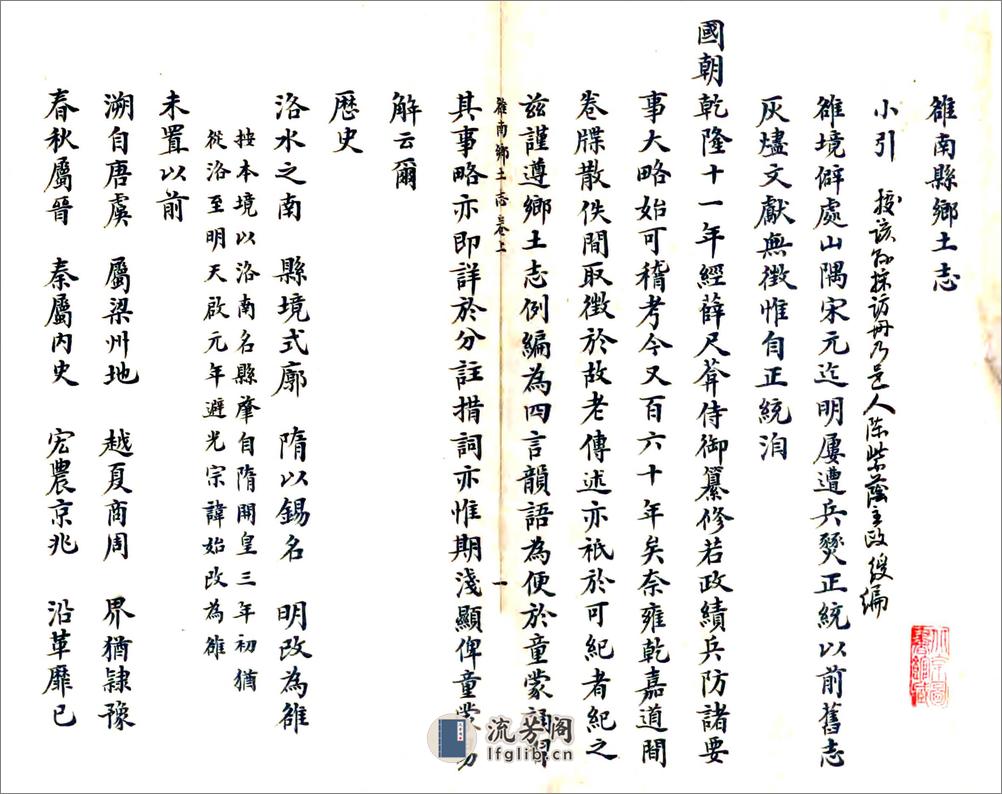 雒南縣鄉土志
小引　按該縣採訪冊乃邑人陈紫蔭主政綬編
雒境僻處山隅宋元迄明屢遭兵燹正統以前舊志
灰燼文獻無徵惟自正統洎
國朝乾隆十一年經薛尺菴侍御纂修若政績兵防諸要
事大略始可稽考今又百六十年矣奈雍乾嘉道間
卷牒散佚間取徵於故老傳述亦祇於可紀者紀之
茲謹遵鄉土志例編為四言韻語為便於童蒙誦習
雒南鄉土志卷上　一
其事略亦即詳於分註措詞亦惟期淺顯俾童蒙易
解云爾
歷史
洛水之南　縣境式廓　隋以錫名　明改為雒
按本境以洛南名縣肇自隋開皇三年初猶
從洛至明天啟元年避光宗諱始改為雒
未置以前
溯自唐虞　屬梁州地　越夏商周　界猶隷豫
春秋屬晉　秦屬內史　宏農京兆　沿革靡已
流芳阁
lfglib.cn